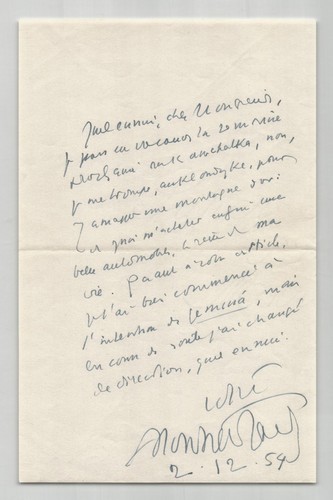 Quel ennui, cher Monsieur,
je pars en vacances la semaine
prochaine au Kamchatka, non,
je me trompe, au Klondyke, pour
y amasser une montagne d'or
et puis m'acheter enfin une
belle automobile, le rêve de ma
vie. Quant à votre article,
je l'ai bien commencé à
l'intention de, mais
en cours de route j'ai changé
de direction, quel ennui.
votre
2.12.54